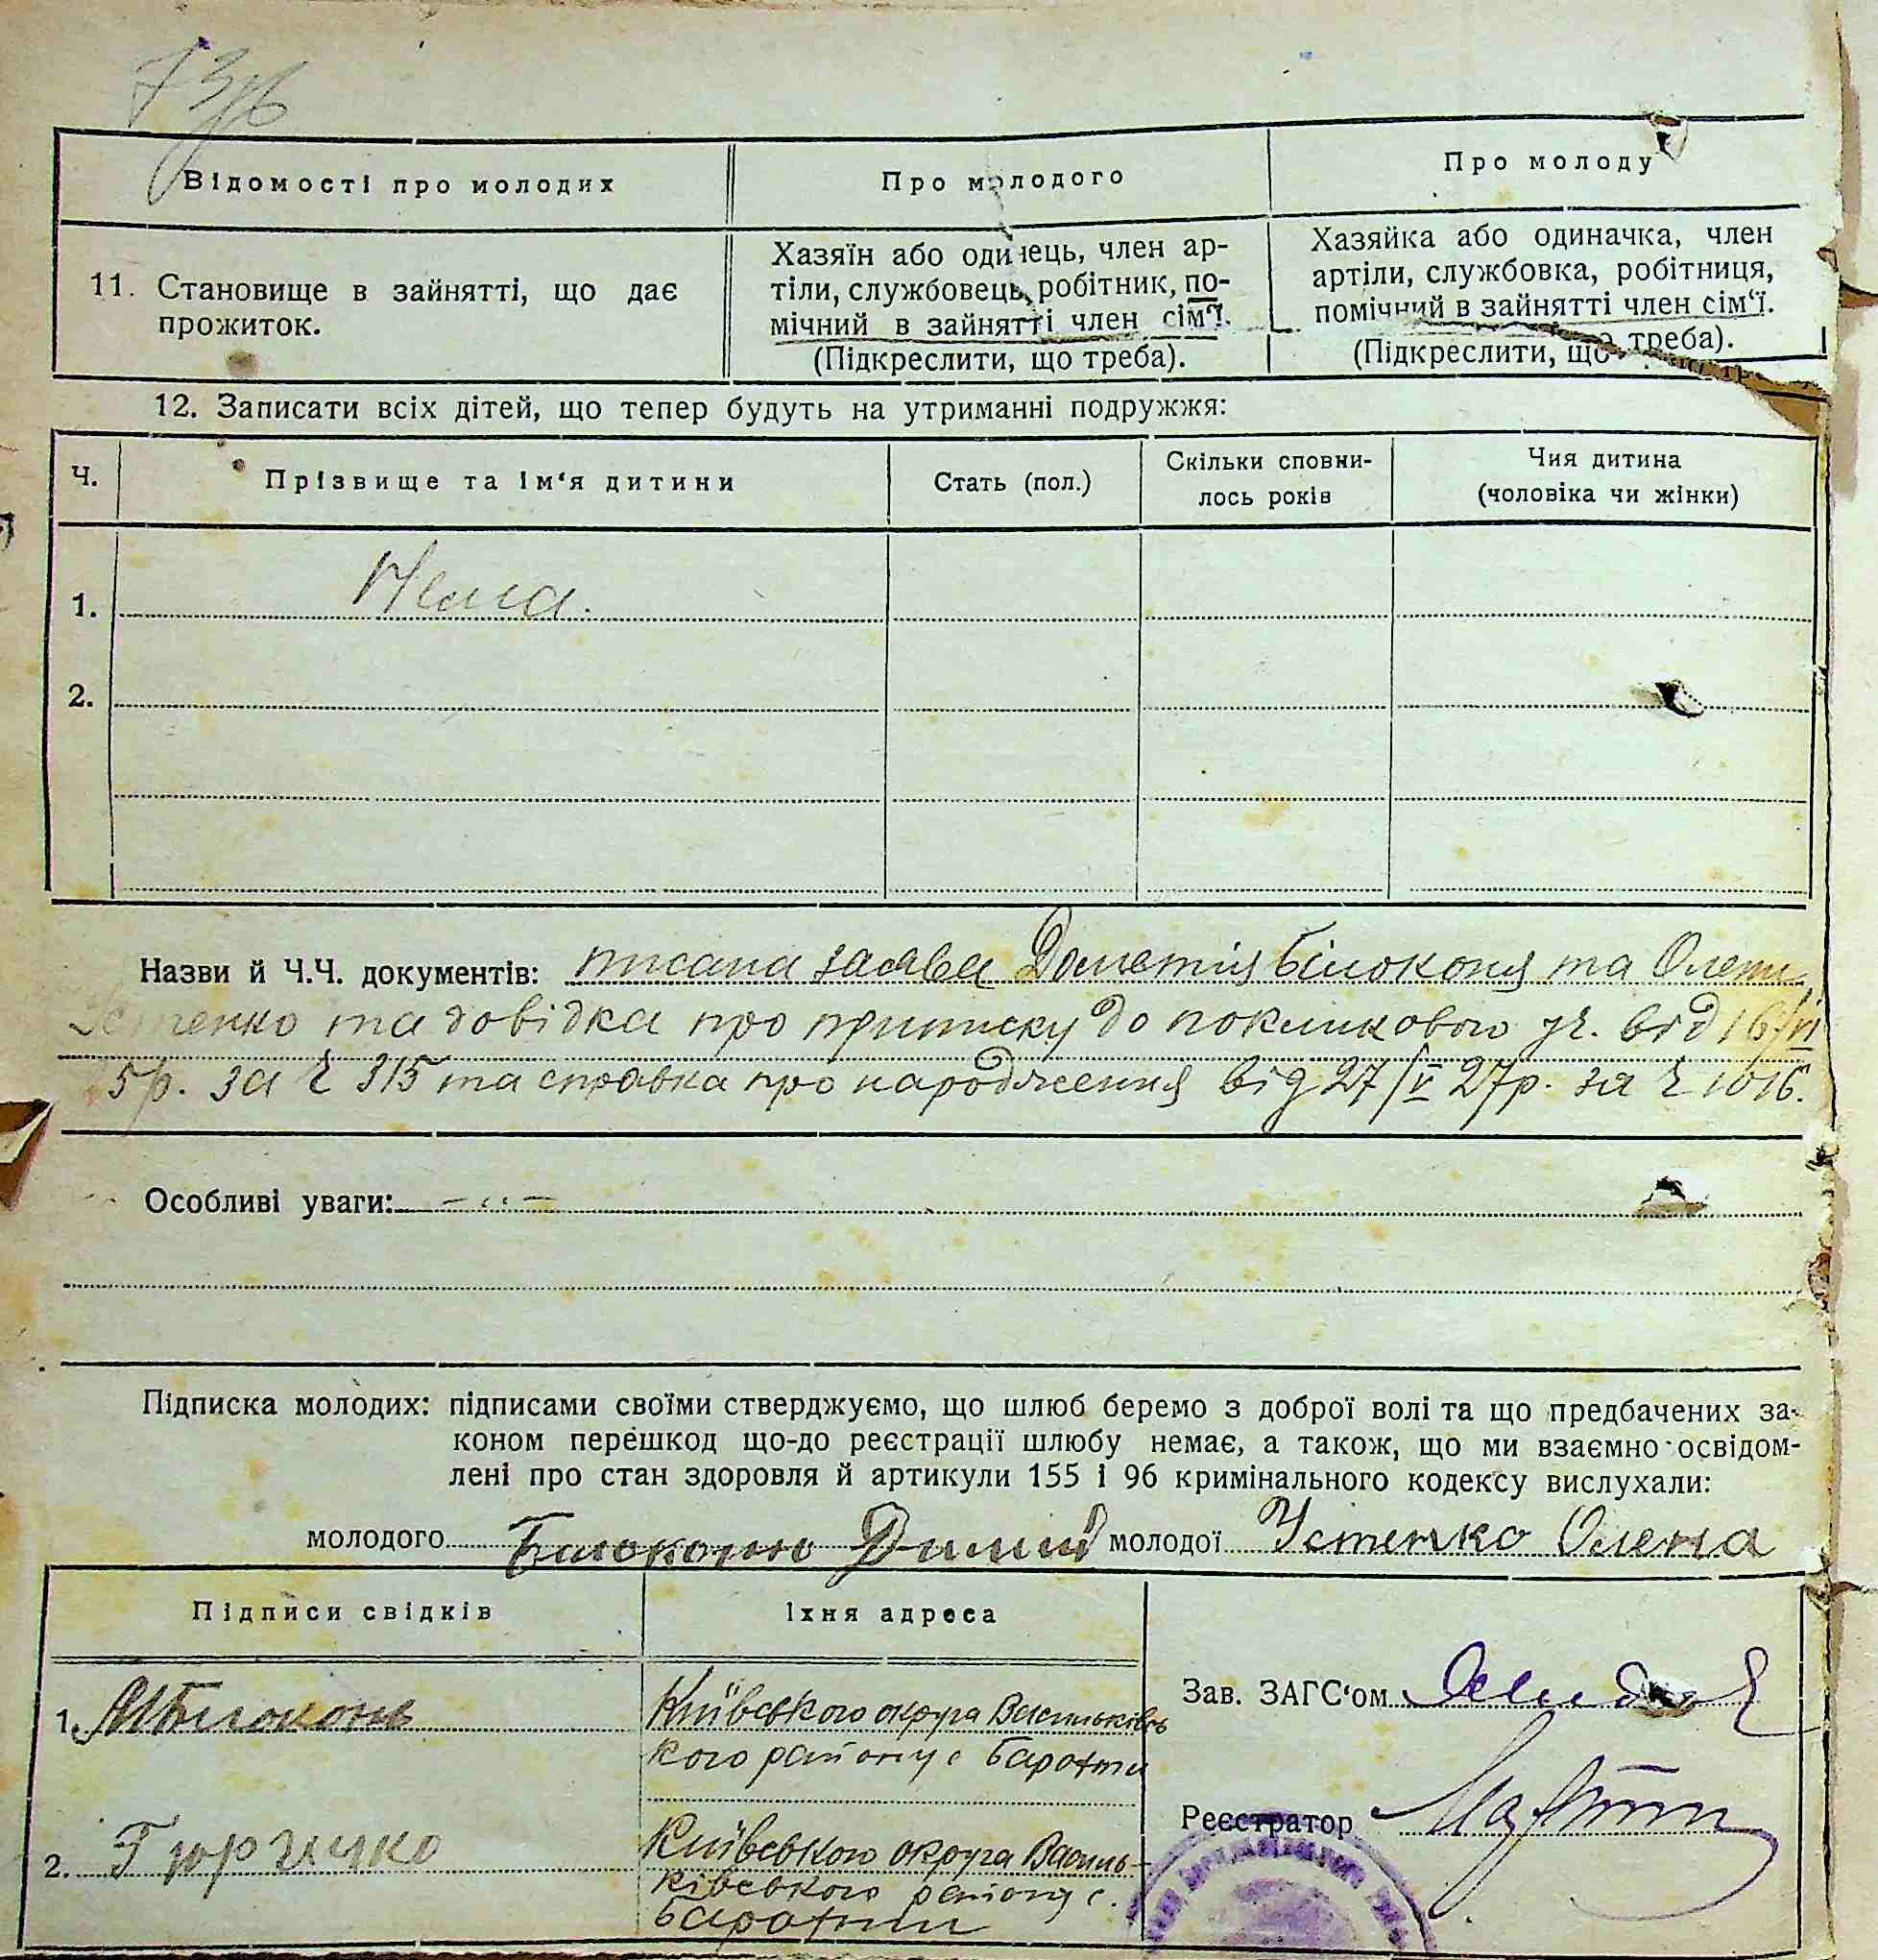 73
Відомості про молодих
Про молодого
Про молоду
11. Становище в зайнятті, що дає
прожиток.
Хазяїн або одинець, член ар-
тіли, службовець, робітник, по-
мічний в зайнятті член сім'ї.
(Підкреслити, що треба).
Хазяйка або одиначка, член
артіли, службовка, робітниця,
помічний в зайнятті член сім'ї.
(Підкреслити, що треба).
12. Записати всіх дітей, що тепер будуть на утриманні подружжя:
Ч.
Прізвище та ім'я дитини
Стать (пол.)
Скільки сповни-
лось років
Чия дитина
(чоловіка чи жінки)
1. Нема.
2.
Назви й Ч.Ч. документів: писана заява Дометія Білоконя та Олени
Устенко та довідка про приписку до покликового уч. від 16/VI
5р. за ч 315 та справка про народження від 27/V 27р. за ч 1016.
Особливі уваги: — „ —
Підписка молодих: підписами своїми стверджуємо, що шлюб беремо з доброї волі та що предбачених за-
коном перешкод що-до реєстрації шлюбу немає, а також, що ми взаємно освідом-
лені про стан здоровля й артикули 155 і 96 кримінального кодексу вислухали:
молодого Білоконь молодої Устенко Олена
Підписи свідків
Їхня адреса
1. Білоконь
Київського округа Васильківсь
кого району с Барахти
2.
Київського округа Василь-
ківського району с.
Барахти
Зав. ЗАГС'ом
Реєстратор